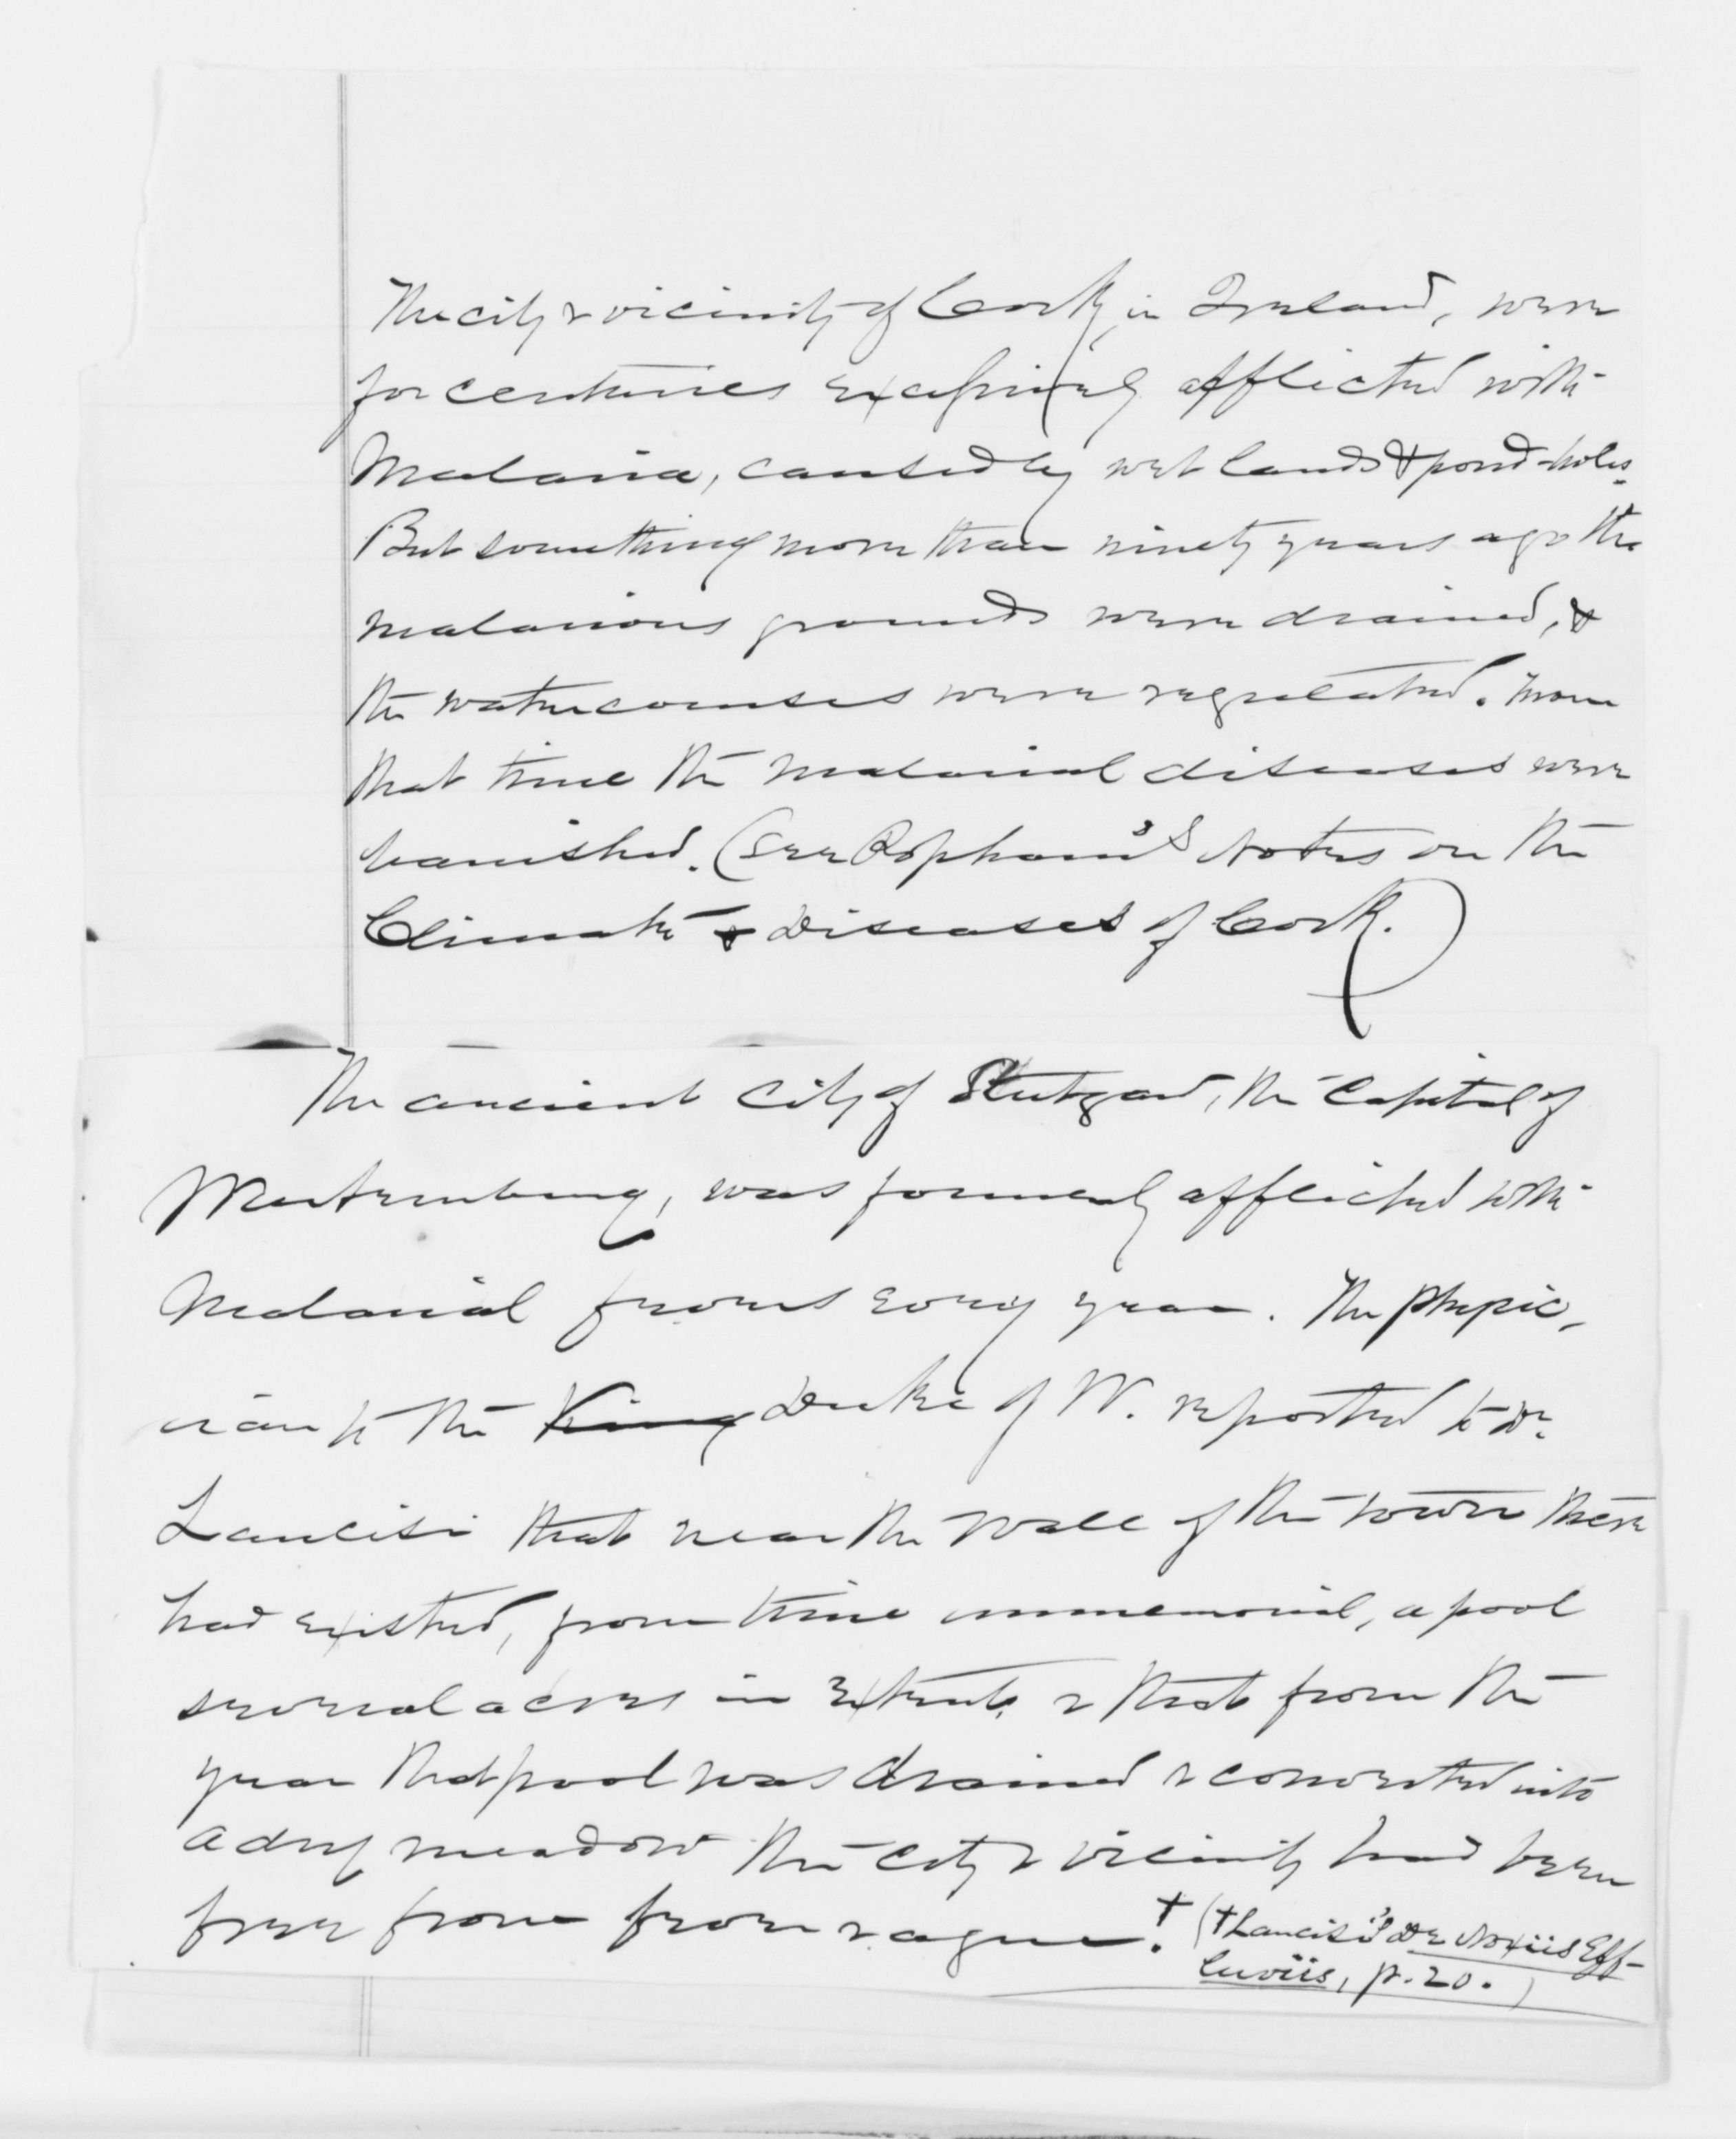 The city & vicinity of Cork, in Ireland, were
for centuries excessively afflicted with
Malaria, caused by wet lands & pond-holes.
But something more than ninety years ago the
malarious grounds were drained, &
the watercourses were regulated. From
that time the malarial diseases were
banished. (See Popham's Notes on the
Climate & Diseases of Cork.)
The ancient city of Stutgard, the Capital of
Wurtemburg, was formerly afflicted with
Malarial fevers every year. The physic-
ian to the King Duke of W. reported to Dr.
Lancisi that near the wall of the town there
had existed, from time immemorial, a pool
several acres in extent, & that from the
year that pool was drained & converted into
a dry meadow the city & vicinity had been
free from fever & ague.† (†Lancisi's De Noxiis Eff-
luviis, p. 20.)